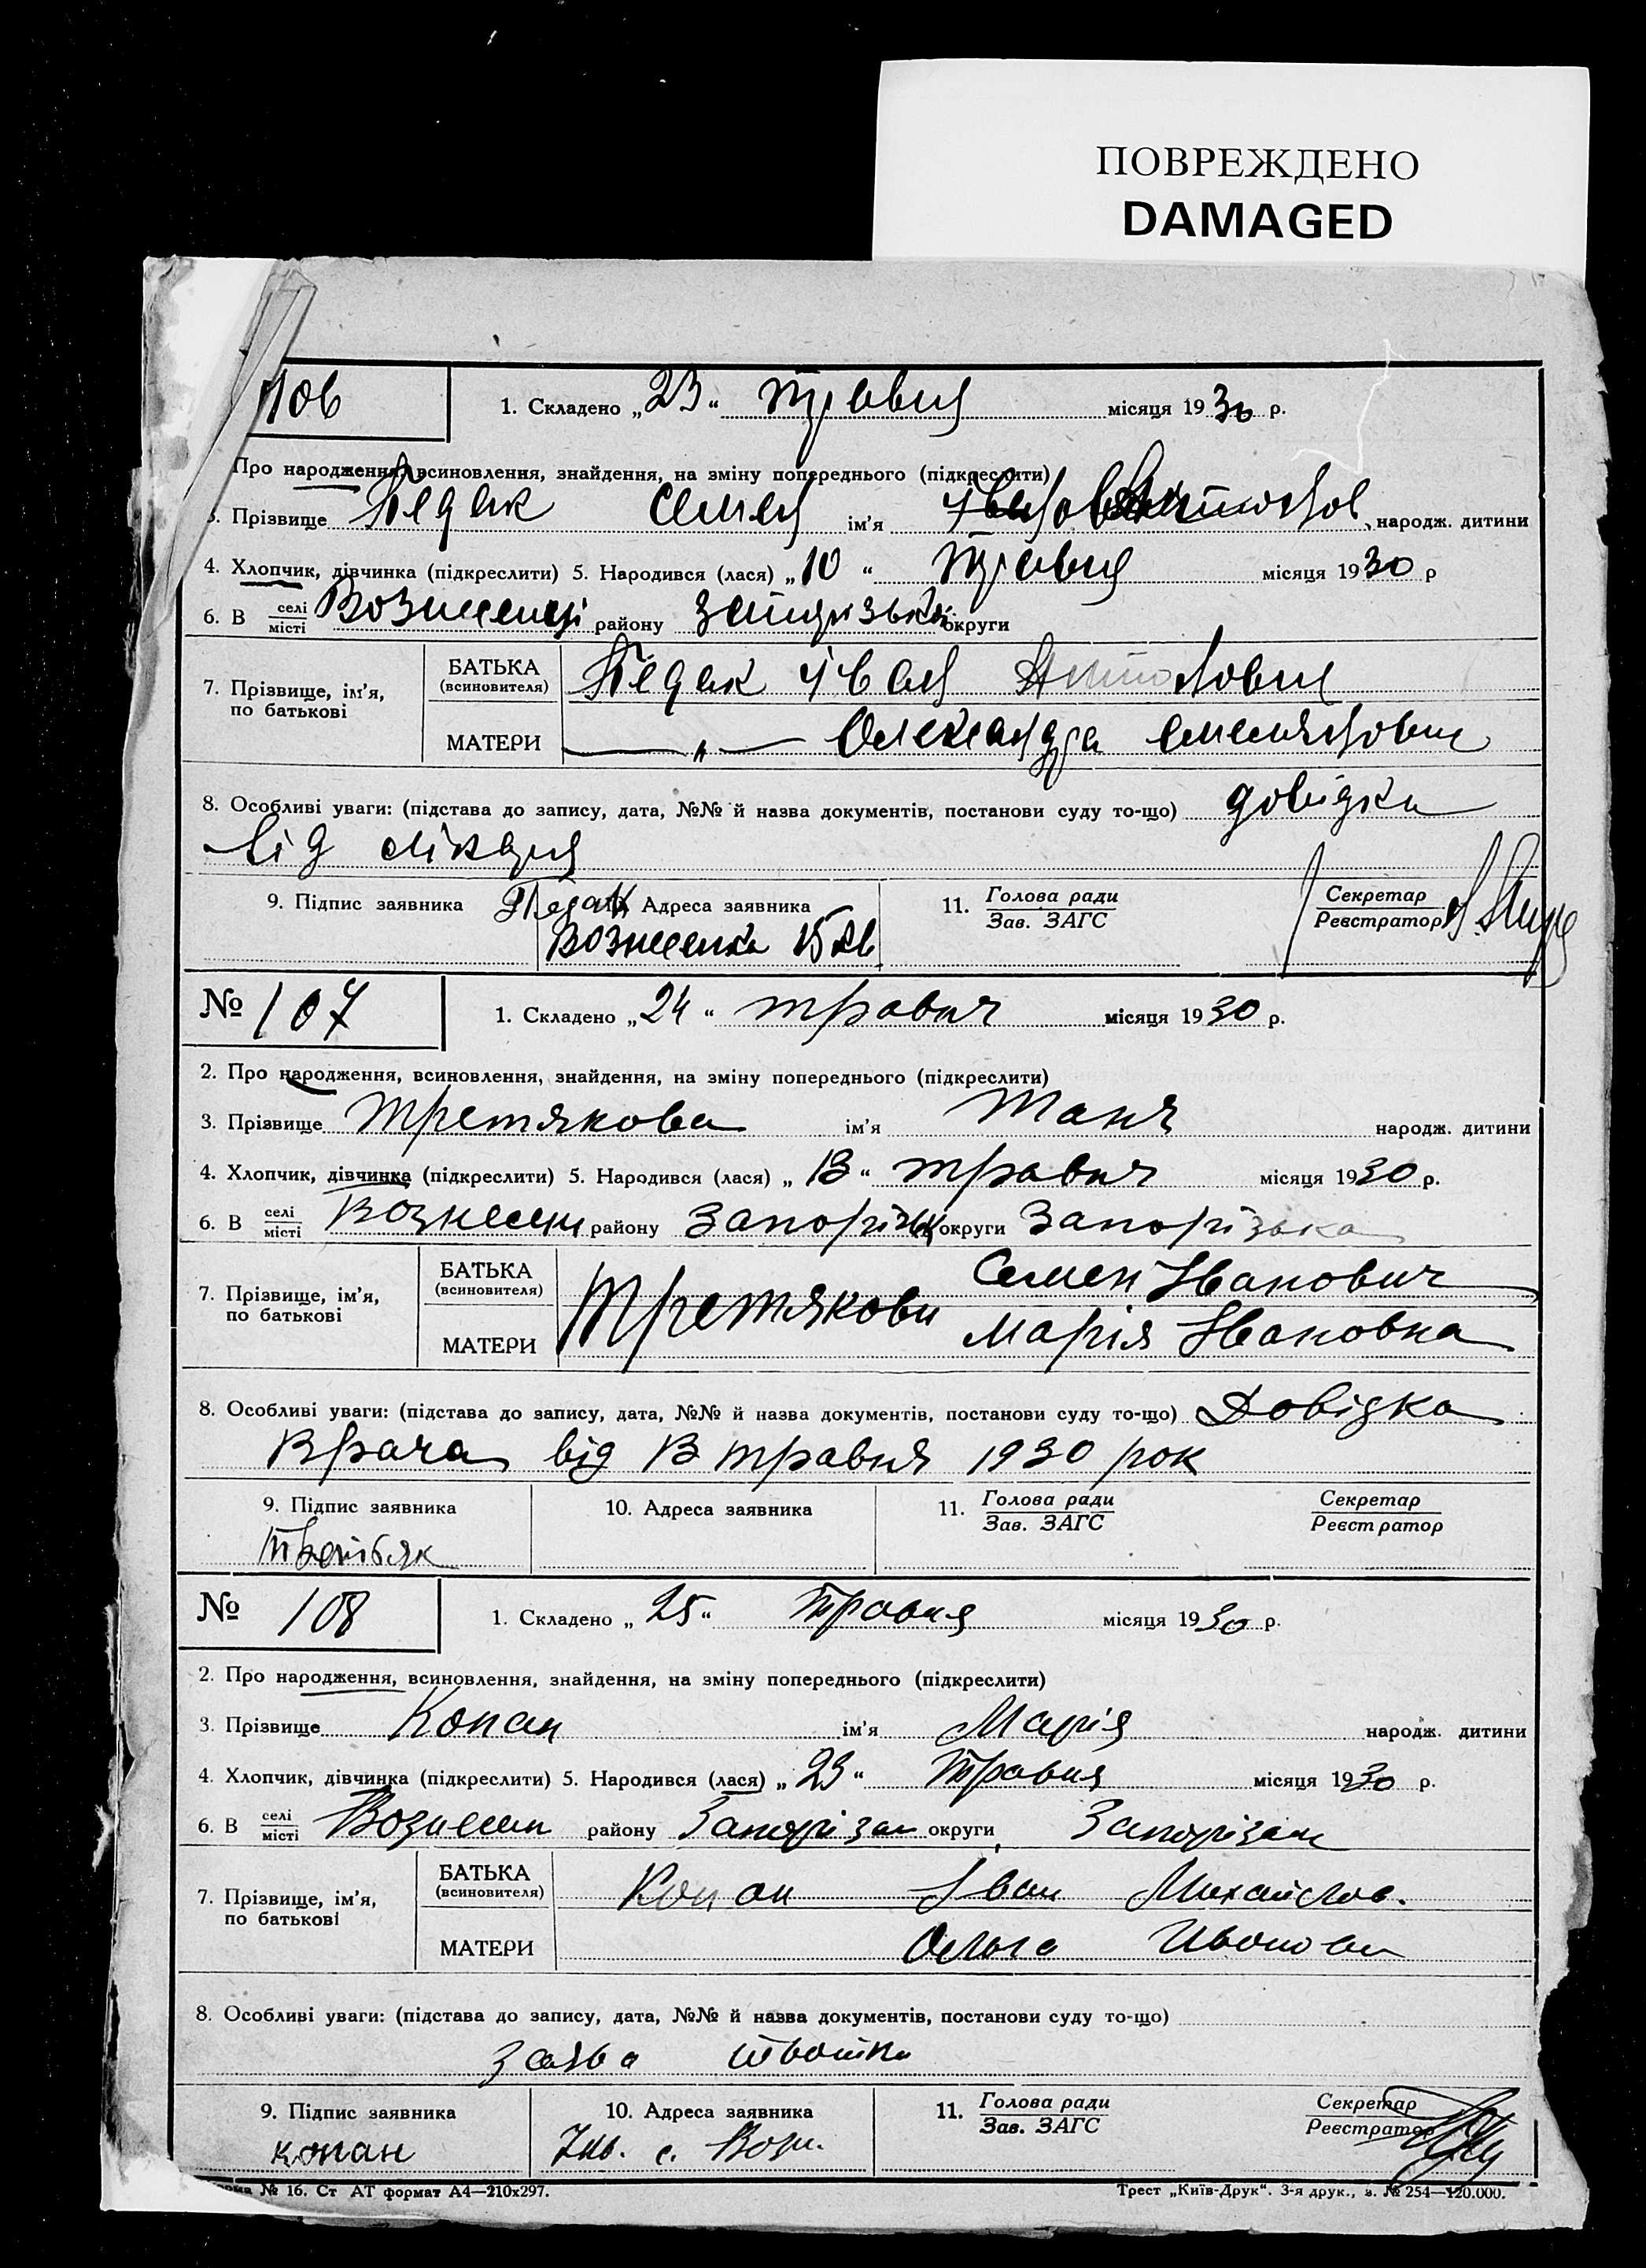 ПОВРЕЖДЕНО
DAMAGED
106
1. Складено „23“ травня місяця 1930 р.
Про народження, всиновлення, знайдення, на зміну попереднього (підкреслити)
3. Прізвище Педак Семен ім'я народж. дитини
4. Хлопчик, дівчинка (підкреслити) 5. Народився (лася) „10“ травня місяця 1930 р
6. В селі/місті Вознесенці району Запорізької округи
7. Прізвище, ім'я, по батькові
БАТЬКА (всиновителя) Педак Іван Антонович
МАТЕРИ —„— Олександра Омеляновна
8. Особливі уваги: (підстава до запису, дата, №№ й назва документів, постанови суду то-що) довідка
від лікаря
9. Підпис заявника Педак Адреса заявника 11. Голова ради/Зав. ЗАГС Секретар/Реєстратор
Вознесенка 15
№ 107
1. Складено „24“ травня місяця 1930 р.
2. Про народження, всиновлення, знайдення, на зміну попереднього (підкреслити)
3. Прізвище Третякова ім'я Таня народж. дитини
4. Хлопчик, дівчинка (підкреслити) 5. Народився (лася) „13“ травня місяця 1930 р.
6. В селі/місті Вознесенц району Запоріжц округи Запорізька
7. Прізвище, ім'я, по батькові
БАТЬКА (всиновителя) Третякови Семен Іванович
МАТЕРИ Марія Івановна
8. Особливі уваги: (підстава до запису, дата, №№ й назва документів, постанови суду то-що) Довідка
Врача від 13 травня 1930 рок
9. Підпис заявника 10. Адреса заявника 11. Голова ради/Зав. ЗАГС Секретар/Реєстратор
№ 108
1. Складено „25“ травня місяця 1930 р.
2. Про народження, всиновлення, знайдення, на зміну попереднього (підкреслити)
3. Прізвище Копан ім'я Марія народж. дитини
4. Хлопчик, дівчинка (підкреслити) 5. Народився (лася) „23“ травня місяця 1930 р.
6. В селі/місті Вознесен району Запорізьк округи Запорізьк
7. Прізвище, ім'я, по батькові
БАТЬКА (всиновителя) Копан Іван Михайлов.
МАТЕРИ Ольга Ивановн
8. Особливі уваги: (підстава до запису, дата, №№ й назва документів, постанови суду то-що)
заява
9. Підпис заявника 10. Адреса заявника 11. Голова ради/Зав. ЗАГС Секретар/Реєстратор
копан с. Возн.
орма № 16. Ст АТ формат А4—210х297. Трест „Київ-Друк“. 3-я друк., з. № 254—120.000.